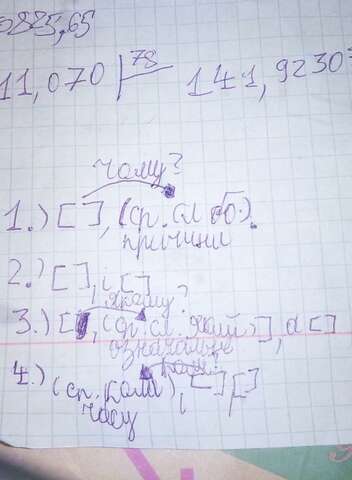 885,65
11,070 78 141,9230
чому?
1.) [ ], (сп. сл бо).
причини
2.) [ ], і [ ]
якому?
3.) [ , (сп. сл. який), ], а [ ]
означальне
коли?
4.) (сп. коли), [ ] і [ ]
часу